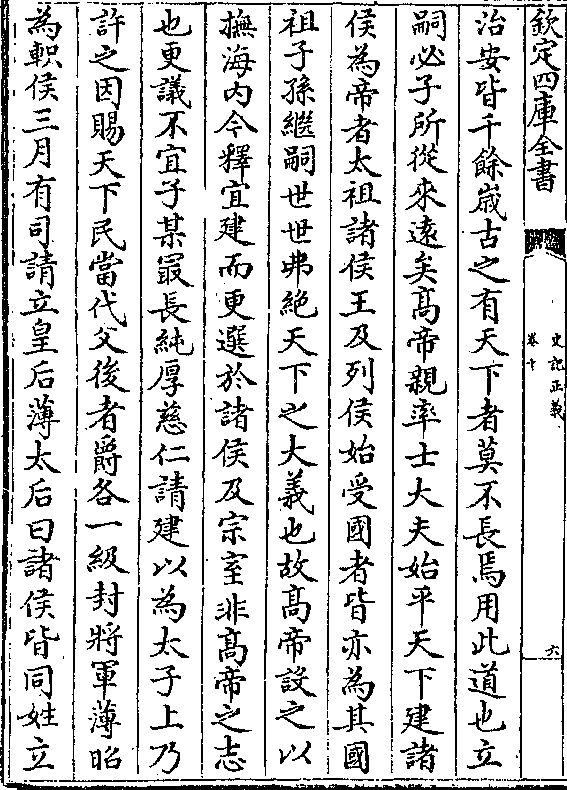 欽定四庫全書
史記正義
卷十
六
治安皆千餘歳古之有天下者莫不長焉用此道也立
嗣必子所從來逺矣髙帝親率士大夫始平天下建諸
侯為帝者太祖諸侯王及列侯始受國者皆亦為其國
祖子孫繼嗣世世弗絶天下之大義也故髙帝設之以
撫海内今釋宜建而更選於諸侯及宗室非髙帝之志
也更議不宜子某最長純厚慈仁請建以為太子上乃
許之因賜天下民當代父後者爵各一級封將軍薄昭
為軹侯三月有司請立皇后薄太后曰諸侯皆同姓立